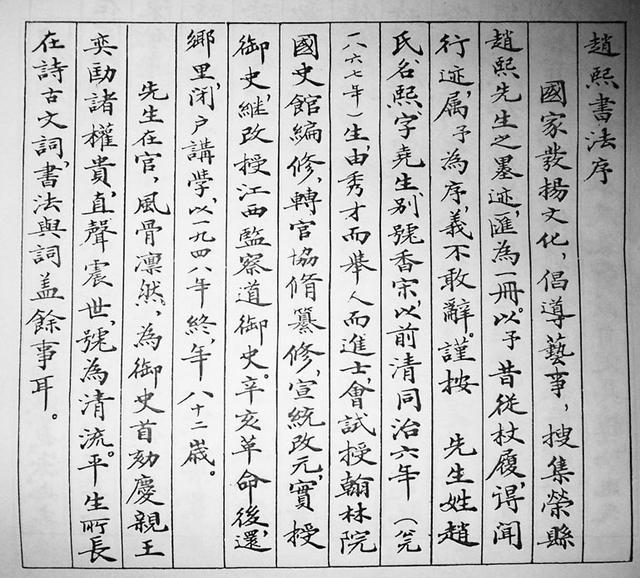 趙熙書法序
國家發揚文化，倡導藝事，搜集榮縣
趙熙先生之墨迹，匯為一冊。以予昔從杖履，得聞
行迹，属予為序，義不敢辭。謹按　先生姓趙
氏名熙，字堯生，別號香宋，以前清同治六年（公元
一八六七年）生，由秀才而舉人而進士，會試授翰林院
國史館編修，轉官協脩纂修，宣統改元，實授
御史，継改授江西監察道御史。辛亥革命後，還
鄉里，闭户講學，以一九四八年終，年八十二歲。
先生在官，風骨凛然，為御史首劾慶親王
奕劻諸權貴，直聲震世，號為清流。平生所長
在詩古文詞，書法與詞盖餘事耳。